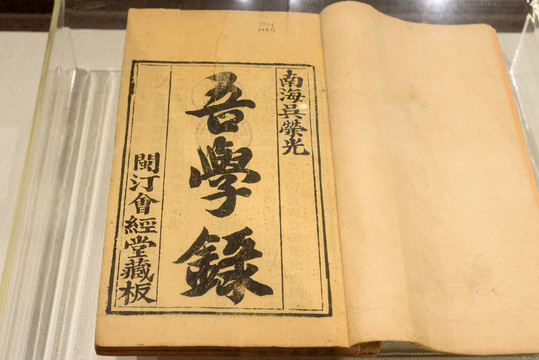 南海吳榮光
吾學錄
閩汀會經堂藏板